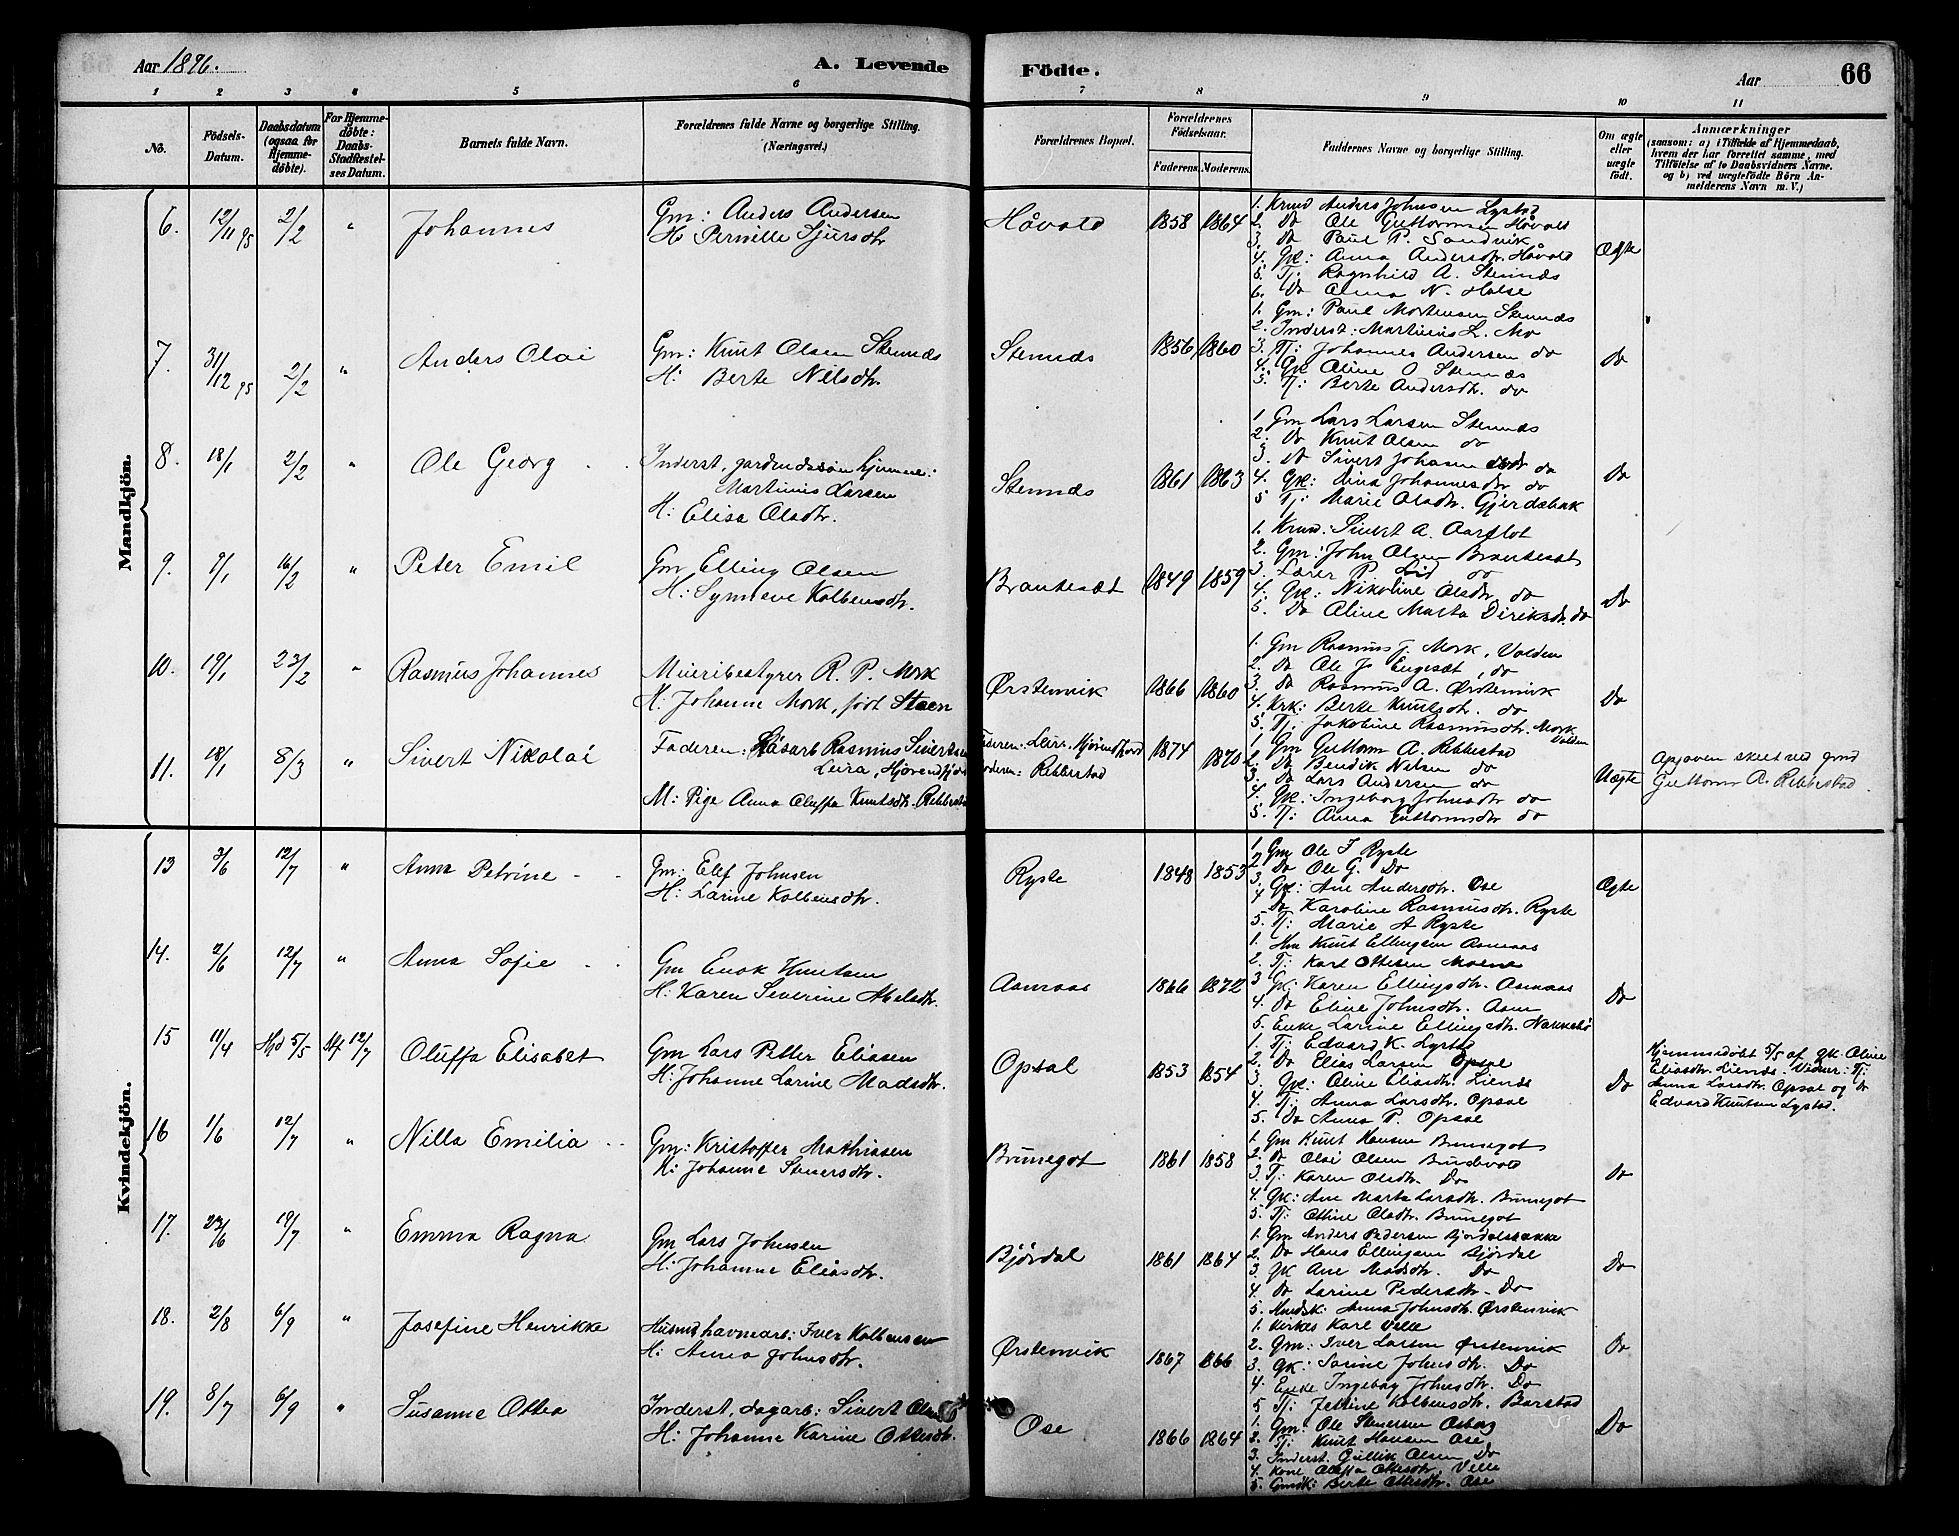 Aar 1896.
A. Levende Födte.
Aar
66
1 2 3 4 5 6 7 8 9 10 11
No.
Födsels-Datum.
Daabsdatum (ogsaa for Hjemme-döbte).
For Hjemme-döbte: Daabs-Stadfæstel-ses Datum.
Barnets fulde Navn.
Forældrenes fulde Navne og borgerlige Stilling. (Næringsvei.)
Forældrenes Bopæl.
Forældrenes Födselsaar.
Faderens. Moderens.
Faddernes Navne og borgerlige Stilling.
Om ægte eller uægte födt.
Anmærkninger
(saasom: a) i Tilfælde af Hjemmedaab,
hvem der har forrettet samme, med
Tilföielse af to Daabsvidners Navne.
og b) ved uægtefödte Börn An-
melderens Navn m. V.)
Mandkjön.
6. 12/11 95 2/2 " Johannes
Gm: Anders Andersen
H: Pernille Sjursdtr
Håvold 1858 1864
1. Krmd Anders Johnsen Lystad
2. Do Ole Guttormsen Håvold
3. Do Paul P. Sandvik
4. Gk: Anna Andersdtr. Håvold
5. Tj: Ragnhild A. Stennæs
6. Do Alma N. Halse
Ægte
7. 31/12 95 2/2 " Anders Olai
Gm: Knut Olsen Stennæs
H: Berte Nilsdtr.
Stennæs 1856 1860
1. Gm: Paul Mortensen Stennæs
2. Inderst: Martinus L. Mo
3. Tj: Johannes Andersen do
4. Gk Oline O Stennæs
5. Tj: Berte Andersdtr. do
Do
8. 18/1 2/2 " Ole Georg
Inderst, gardmdssøn hjemme:
Martinus Larsen
H: Elisa Olsdtr.
Stennæs 1861 1863
1 Gm Lars Larsen Stennæs
2. Do Knut Olsen do
3. Do Sivert Johansen do
4. Gk: Nina Johannesdtr do
5 Tj: Marie Olsdtr. Gjerdsbak
Do
9. 9/1 16/2 " Peter Emil
Gm Elling Olsen
H: Synneve Kolbensdtr.
Brautesæt 1849 1859
1. Krmd: Sivert A. Aarflot
2. Gm: John Olsen Brautesæt
3. Lærer P. Lid do
4. Gk: Nikoline Olsdtr do
5. Do Oline Marta Diriksdtr. do
Do
10. 19/1 23/2 " Rasmus Johannes
Mieribestyrer R. P. Mork
H. Johanne Mork, født Steen
Ørstenvik 1866 1860
1. Gm Rasmus J. Mork, Volden
2. Do Ole Js Engesæt, do
3. Do Rasmus A. Ørstenvik
4. Krk: Berte Knutsdtr. do
5. Tj: Jakobine Rasmusdtr. Mork Volden
Do
11. 18/1 8/3 " Sivert Nikolai
Faderen: Løsarb Rasmus Sivertsen
Leira, Hjørendfjord
M: Pige Anna Oluffa Knutsdtr. Rebbestad
Faderen: Leir. Hjørendfjord
Moderen: Rebbestad
1874 1870
1. Gm Guttorm A. Rebbestad
2. Do Bendik Nilsen do
3. Do Lars Andersen do
4. Gk: Ingeborg Johnsdtr do
5. Tj: Anna Guttormsdtr do
Uægte
Opgaven skeet ved grmd
Guttorm A. Rebbestad.
Kvindekjön.
13 3/6 12/7 " Anna Petrine
Gm: Elef Johnsen
H: Larine Kolbensdtr.
Ryste 1848 1853
1. Gm Ole J Ryste
2. Do Ole G. Do
3. Gk: Ane Andersdtr. Ose
4. Do Karoline Rasmusdtr. Ryste
5. Tj: Marie A Ryste
Ægte
14. 2/6 12/7 " Anna Sofie
Gm Enok Knutsen
H: Karen Severine Abelsdtr.
Aamaas 1866 1872
1. Gm Knut Ellingsen Aamaas
2. Tj: Karl Ottesen Moene
3 Gk: Karen Ellingsdtr. Aamaas
4. Do Eline Johnsdtr. Aam
5. Enke Larine Ellingsdtr.
Do
15 11/4 Hjd 5/5 St 12/7 Oluffa Elisabet
Gm Lars Petter Eliasen
H: Johanne Larine Madsdtr.
Opsal 1853 1854
1. Tj: Edvard K. Lystad
2. Do Elias Larsen Opsal
3. Gk: Oline Eliasdtr. Liends
4. Tj: Anna Larsdtr. Opsal
5. Do Anna P. Opsal
Do
Hjemmedøbt 5/5 af gk Oline
Eliasdtr. Liends. Vidner: Tj:
Anna Larsdtr. Opsal og Do
Edvard Knutsen Lystad.
16 1/6 12/7 " Nilla Emilia
Gm: Kristoffer Mathiasen
H: Johanne Steversdtr.
Brunegot 1861 1858
1. Gm Knut Hansen Brunegot
2. Do Olai Olsen Budevold
3. Tj: Karen Olsdtr. Do
4. Gk: Ane Marta Larsdtr. Brunegot
5. Tj: Ottine Olsdtr. Brunegot
Do
17. 23/6 19/7 " Emma Ragna
Gm Lars Johnsen
H: Johanne Eliasdtr.
Bjørdal 1861 1864
1. Gm Anders Pedersen Bjørdalsbakke
2. Do Hans Ellingsen Bjørdal
3. Gk Ane Madsdtr. Do
4. Do Larine Pedersdtr. Do
5. Anna Johnsdtr. Ørstenvik
Do
18. 2/8 6/9 " Josefine Henrikke
Husmd havnearb: Iver Kolbensen
H: Anna Johnsdtr.
Ørstenvik 1867 1866
1. Kirkes Karl Velle
2. Gm: Iver Larsen Ørstenvik
3. Gk: Sanne Johnsdtr. Do
4. Enke Ingebog Johnsdtr. Do
5 Tj: Jetline Kolbensdtr. Barstad
Do
19. 8/7 6/9 " Susanne Ottea
Inderst, dagarb: Sivert Olsen
H: Johanne Karine Ottesdtr.
Ose 1866 1864
1. Gm: Ole Stenersen Osborg
2. Tj: Knut Hansen Ose
3. Inderst. Gullik Olsen Do
4. Kone Oluffa Ottesdtr. Velle
5. Gmdk: Berte Ottesdtr. Ose
Do